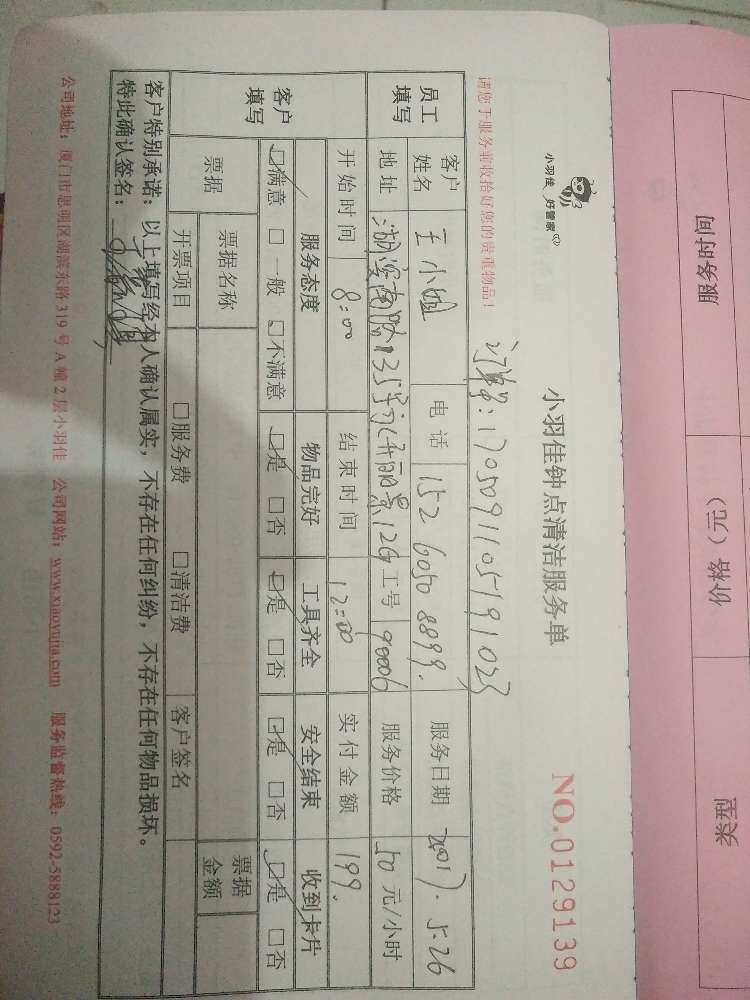 服务时间
价格（元）
类型
小羽佳 好管家
小羽佳钟点清洁服务单
NO.0129139
订单号：1705091105191023
请您于服务前收拾好您的贵重物品！
员工填写
客户姓名 王小姐 电话 152 6050 8899. 服务日期 2017. 5.26
地址 湖滨南路 工号 90006 服务价格 50 元/小时
客户填写
开始时间 8:00 结束时间 12:00 实付金额 199.
服务态度 物品完好 工具齐全 安全结束 收到卡片
☑满意 □一般 □不满意 ☑是 □否 ☑是 □否 ☑是 □否 ☑是 □否
票据 票据名称 票据金额
开票项目 □服务费 □清洁费 客户签名
客户特别承诺：以上填写经本人确认属实，不存在任何纠纷，不存在任何物品损坏。
特此确认签名：
公司地址：厦门市思明区湖滨东路 319 号 A 幢 2 层小羽佳 公司网站：www.xiaoyujia.com 服务监督热线：0592-5888123